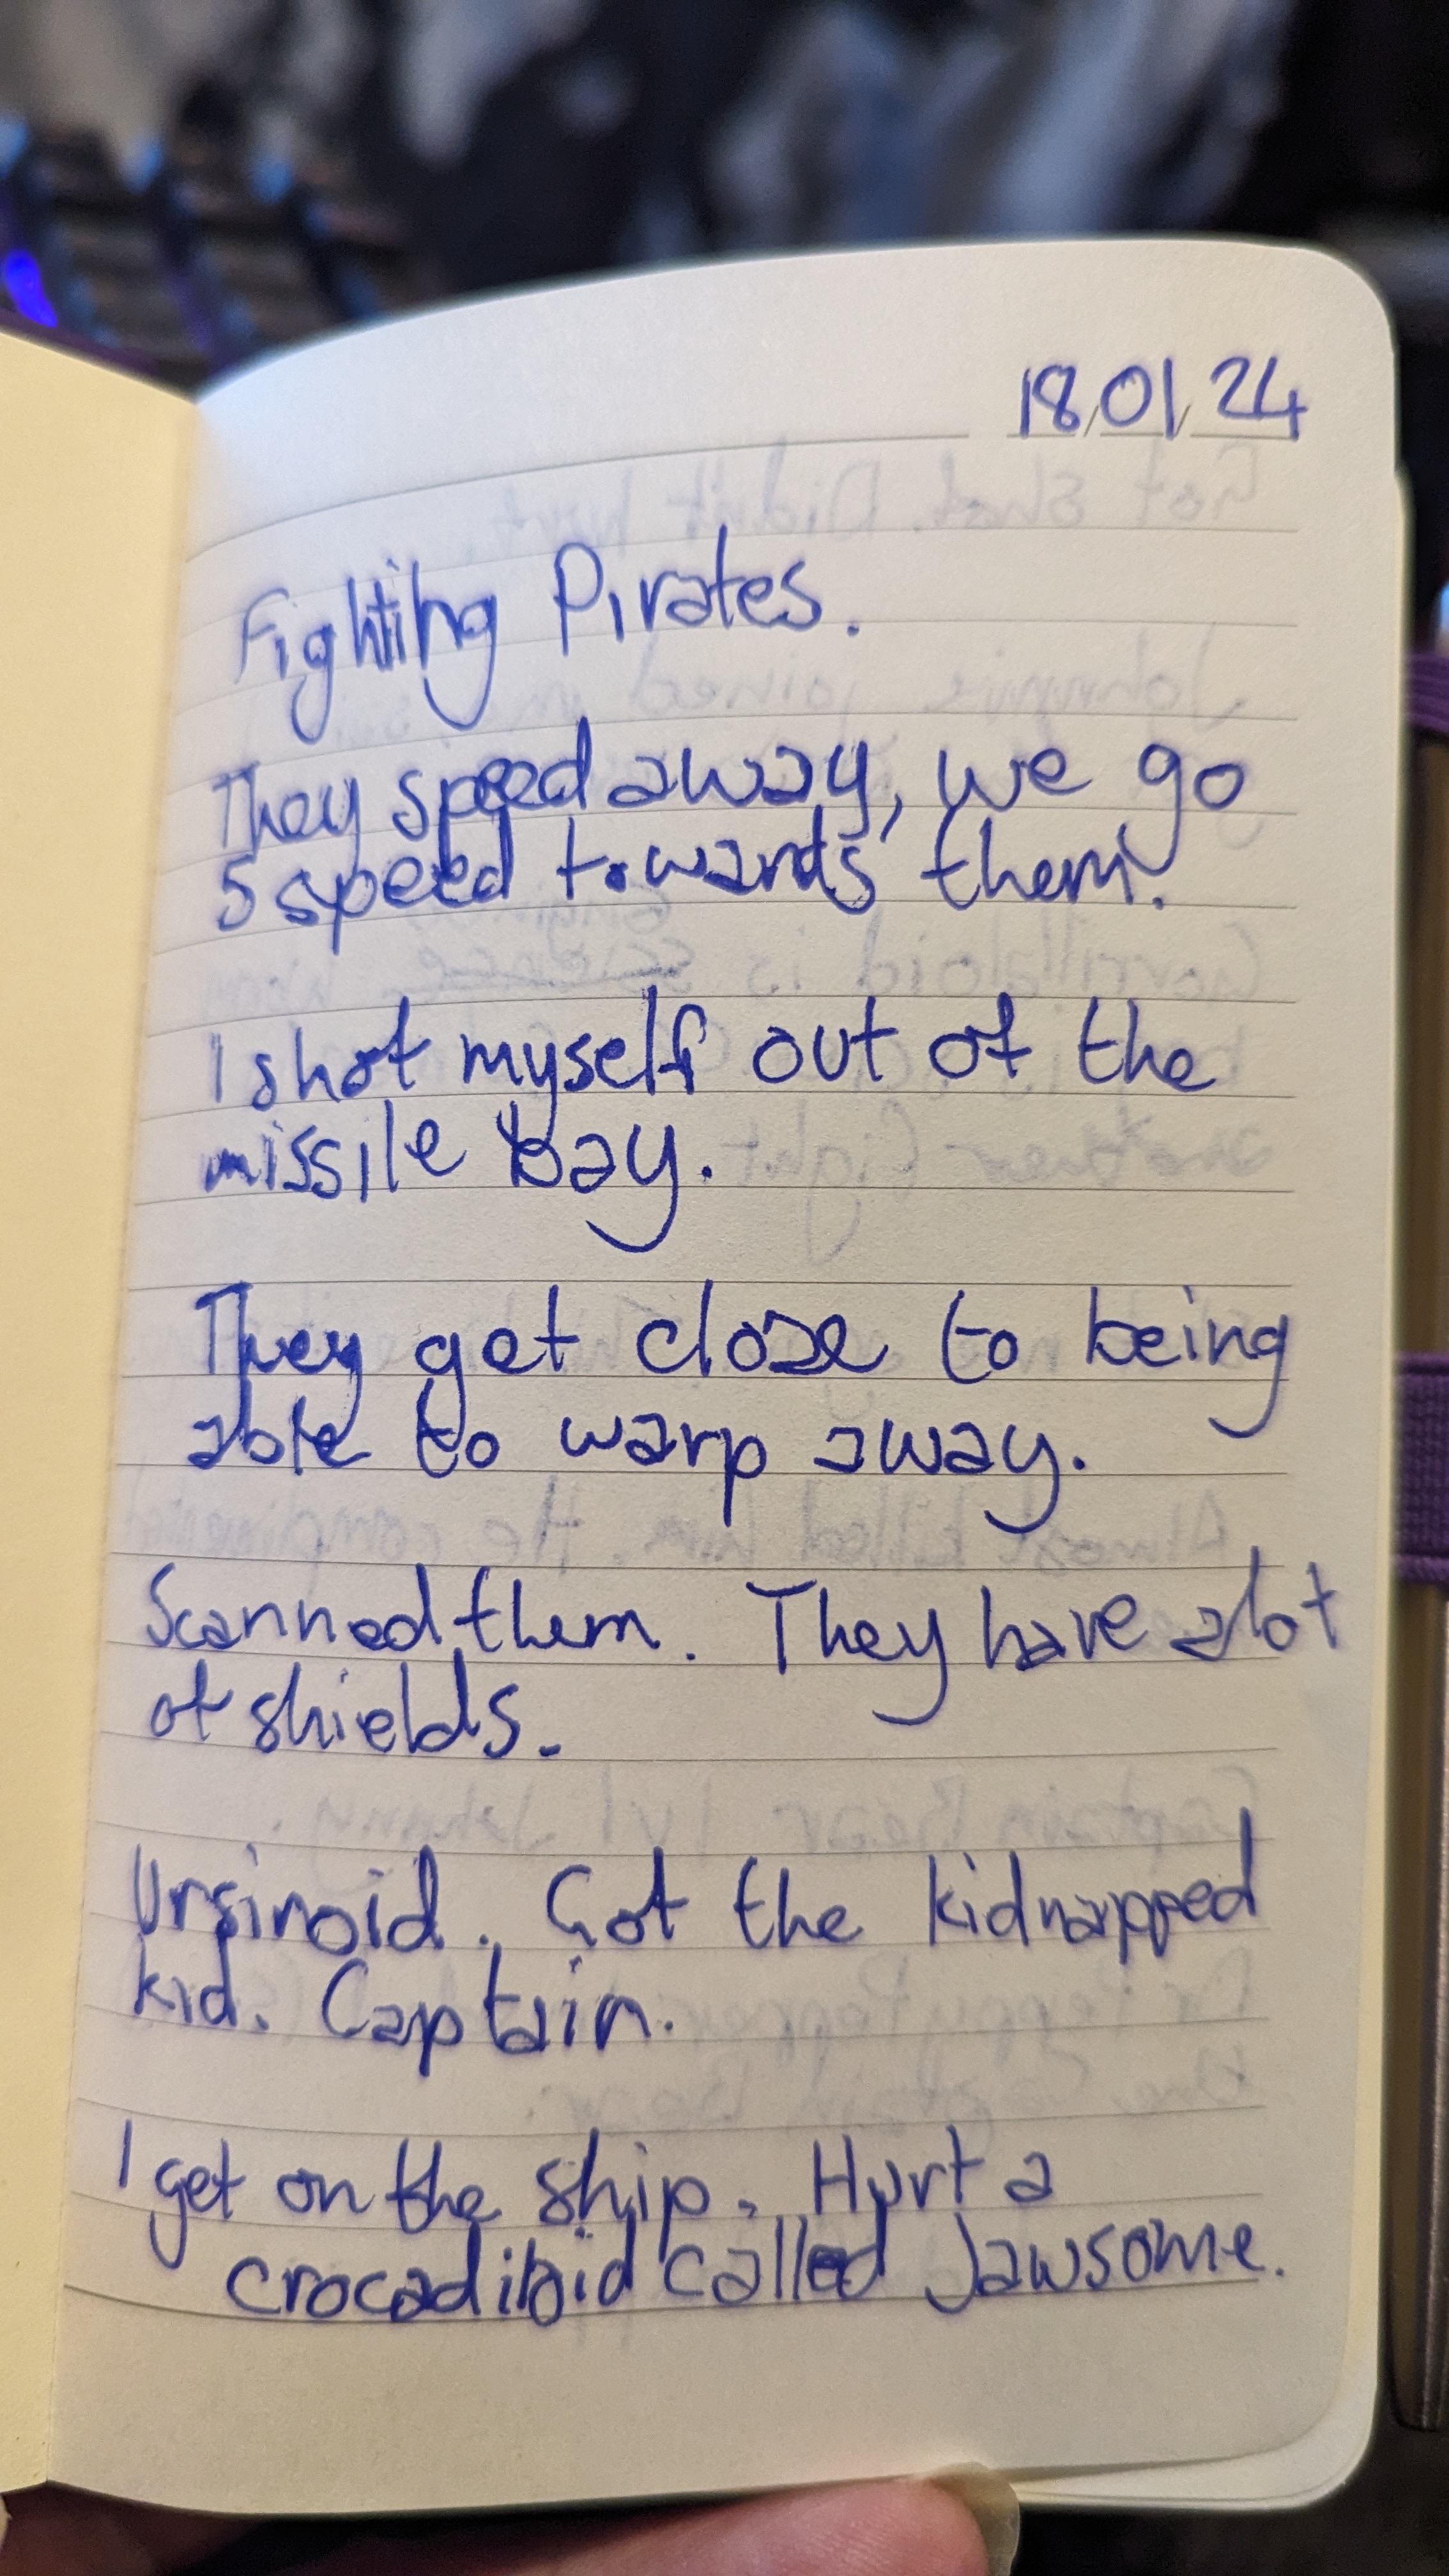 18/01/24
Fighting Pirates.
They speed away, we go
5 speed towards them.
I shot myself out of the
missile bay.
They get close to being
able to warp away.
Scanned them. They have alot
of shields.
Ursinoid. Got the kidnapped
kid. Captain.
I get on the ship. Hurt a
crocadiloid called Jawsome.